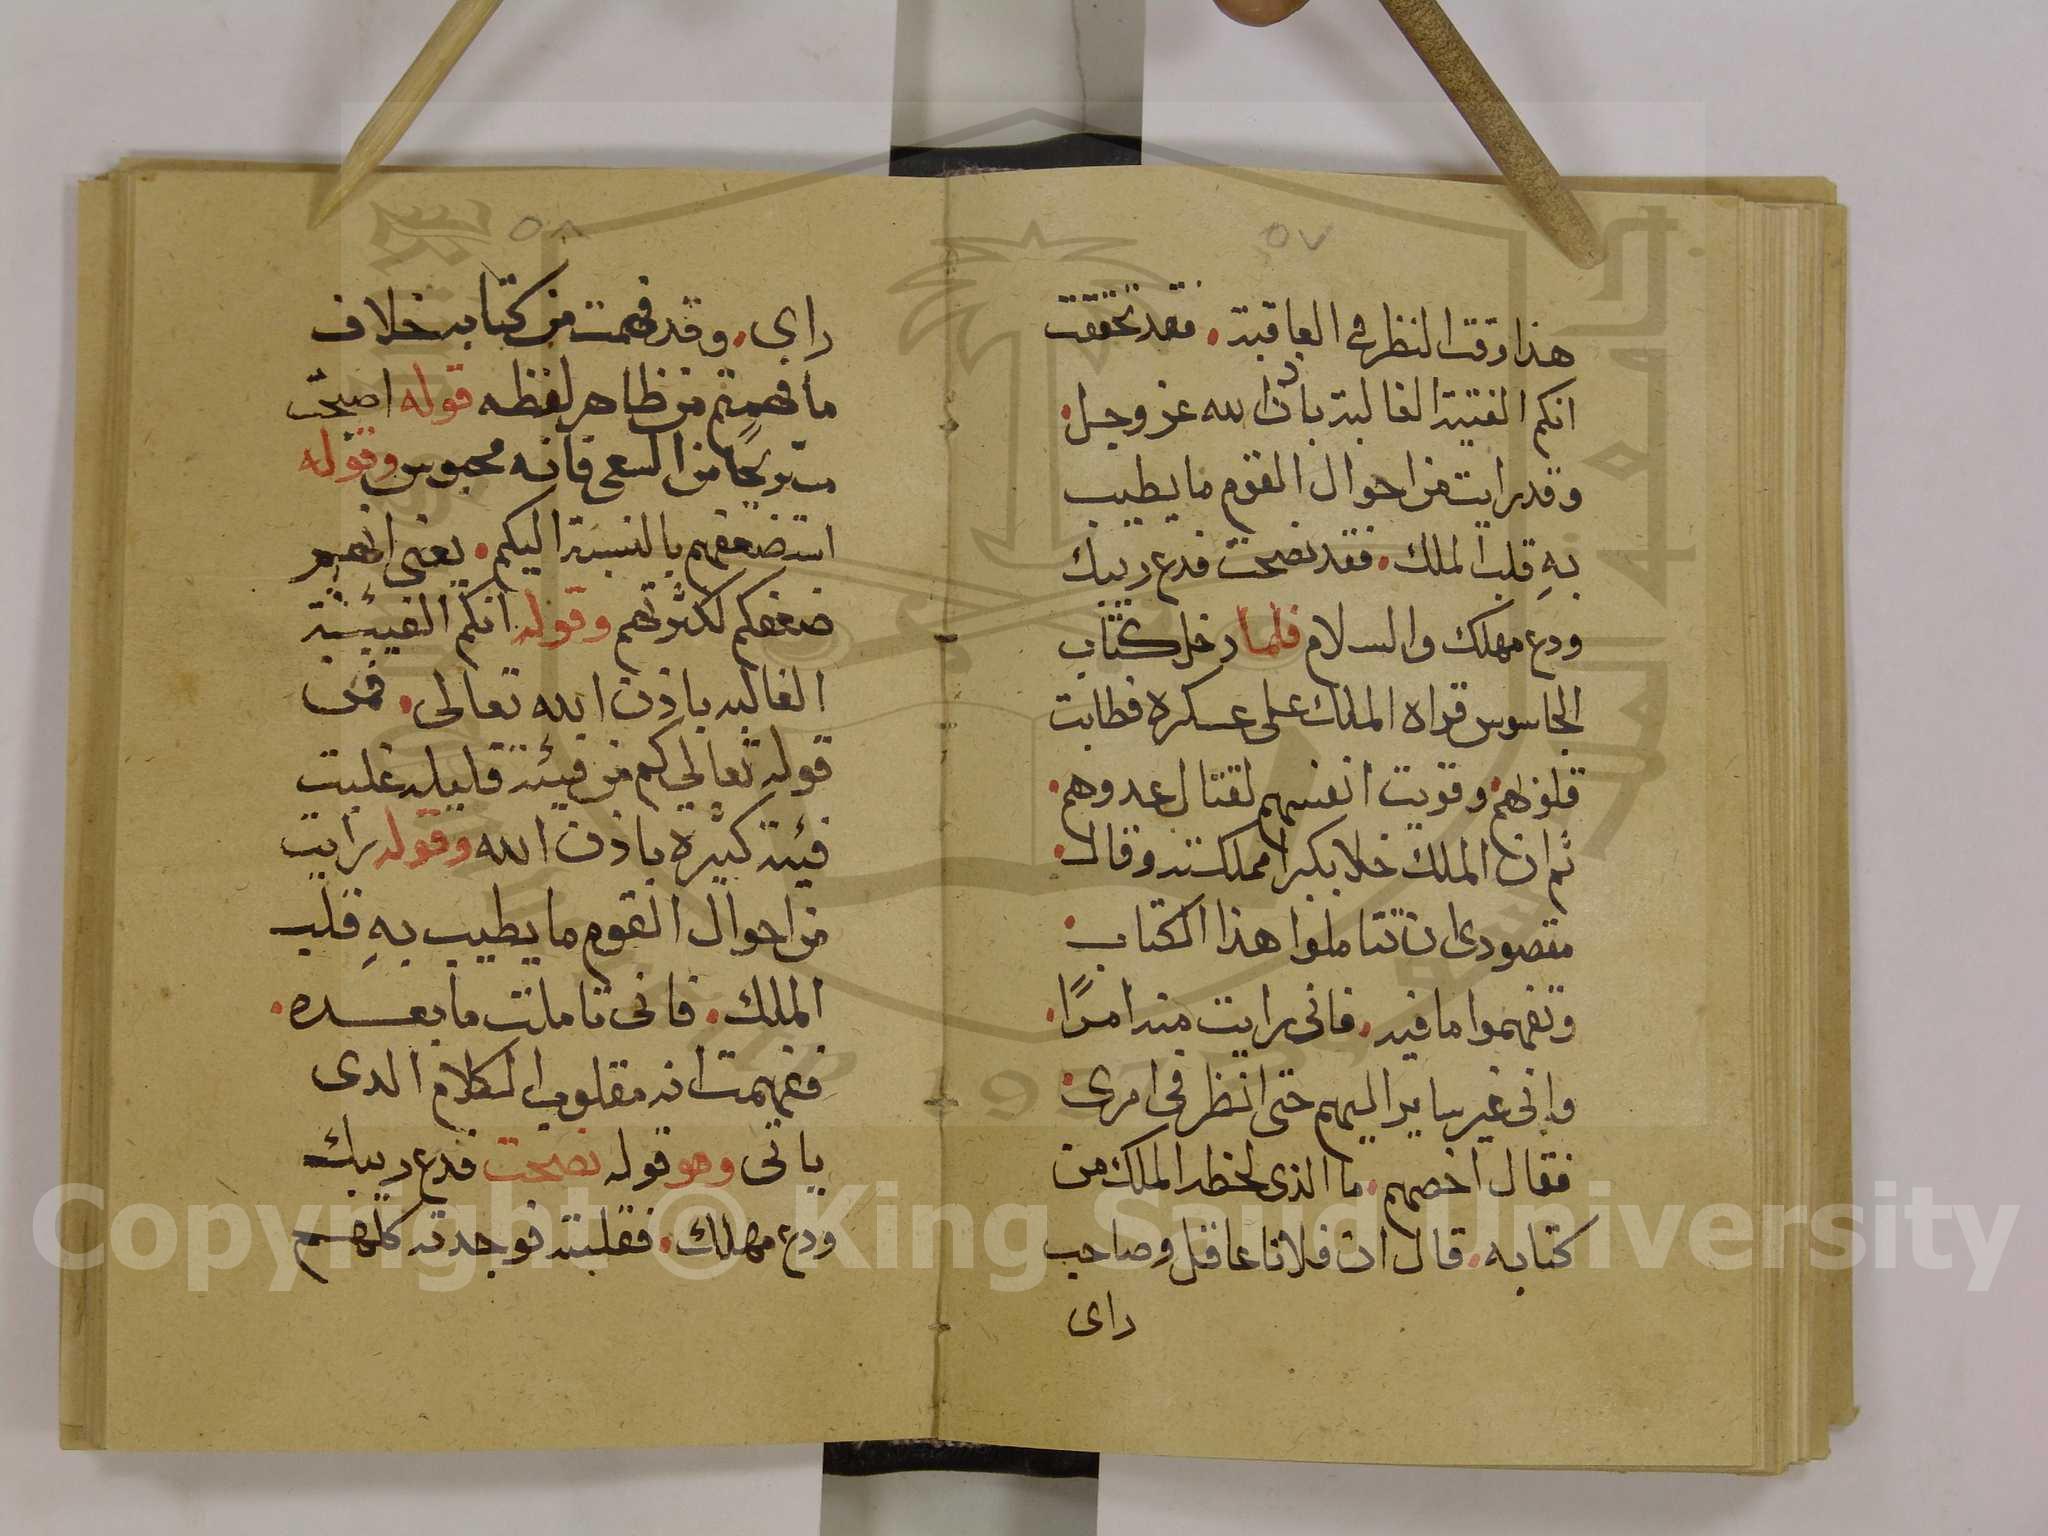 ٥٧
هذا وقت النظر في العاقبة. فقد تحققت
انكم الفتية الغالبة باذن الله عز وجل.
وقد رايت من احوال القوم ما يطيب
به قلب الملك. فقد نصحت فدع ريبك
ودع مهلك والسلام فلما دخل كتاب
الجاسوس قراه الملك على عسكره فطابت
قلوبهم. وقويت انفسهم لقتال عدوهم.
ثم ان الملك خلا بكبرا مملكته وقال.
مقصودى ان تتاملوا هذا الكتاب.
وتفهموا ما فيه. فانى رايت منه امرًا.
وإنى غير ساير اليهم حتى انظر فى امرى.
فقال اخصهم. ما الذى لحظ الملك من
كتابه. قال ان فلانا عاقل وصاحب
راى
٥٨
راي. وقد فهمت من كتابه خلاف
ما فهمتم من ظاهر لفظه قوله اصبحت
مستريحًا من السعى فانه محبوس وقوله
استضعفهم بالنسبة اليكم. يعنى انهم
ضعفكم لكثرتهم وقوله انكم الفيئة
الغالبه باذن الله تعالى. فمن
قوله تعالي كم من فيئة قليله غلبت
فيئة كثيرة باذن الله وقوله رايت
من احوال القوم ما يطيب بهِ قلب
الملك. فانى تاملت ما بعده.
ففهمت انه مقلوب الكلام الدى
ياتى وهو قوله نصحت فدع ريبك
ودع مهلك. فقلبته فوجدته كلهم
Copyright © King Saud University